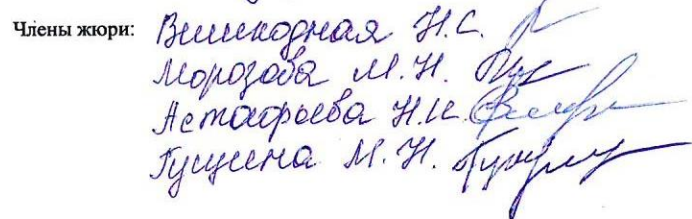 Члены жюри: Вешкодная Н.С.
Морозова М.Н.
Астафьева Н.И.
Гущина М.Н.